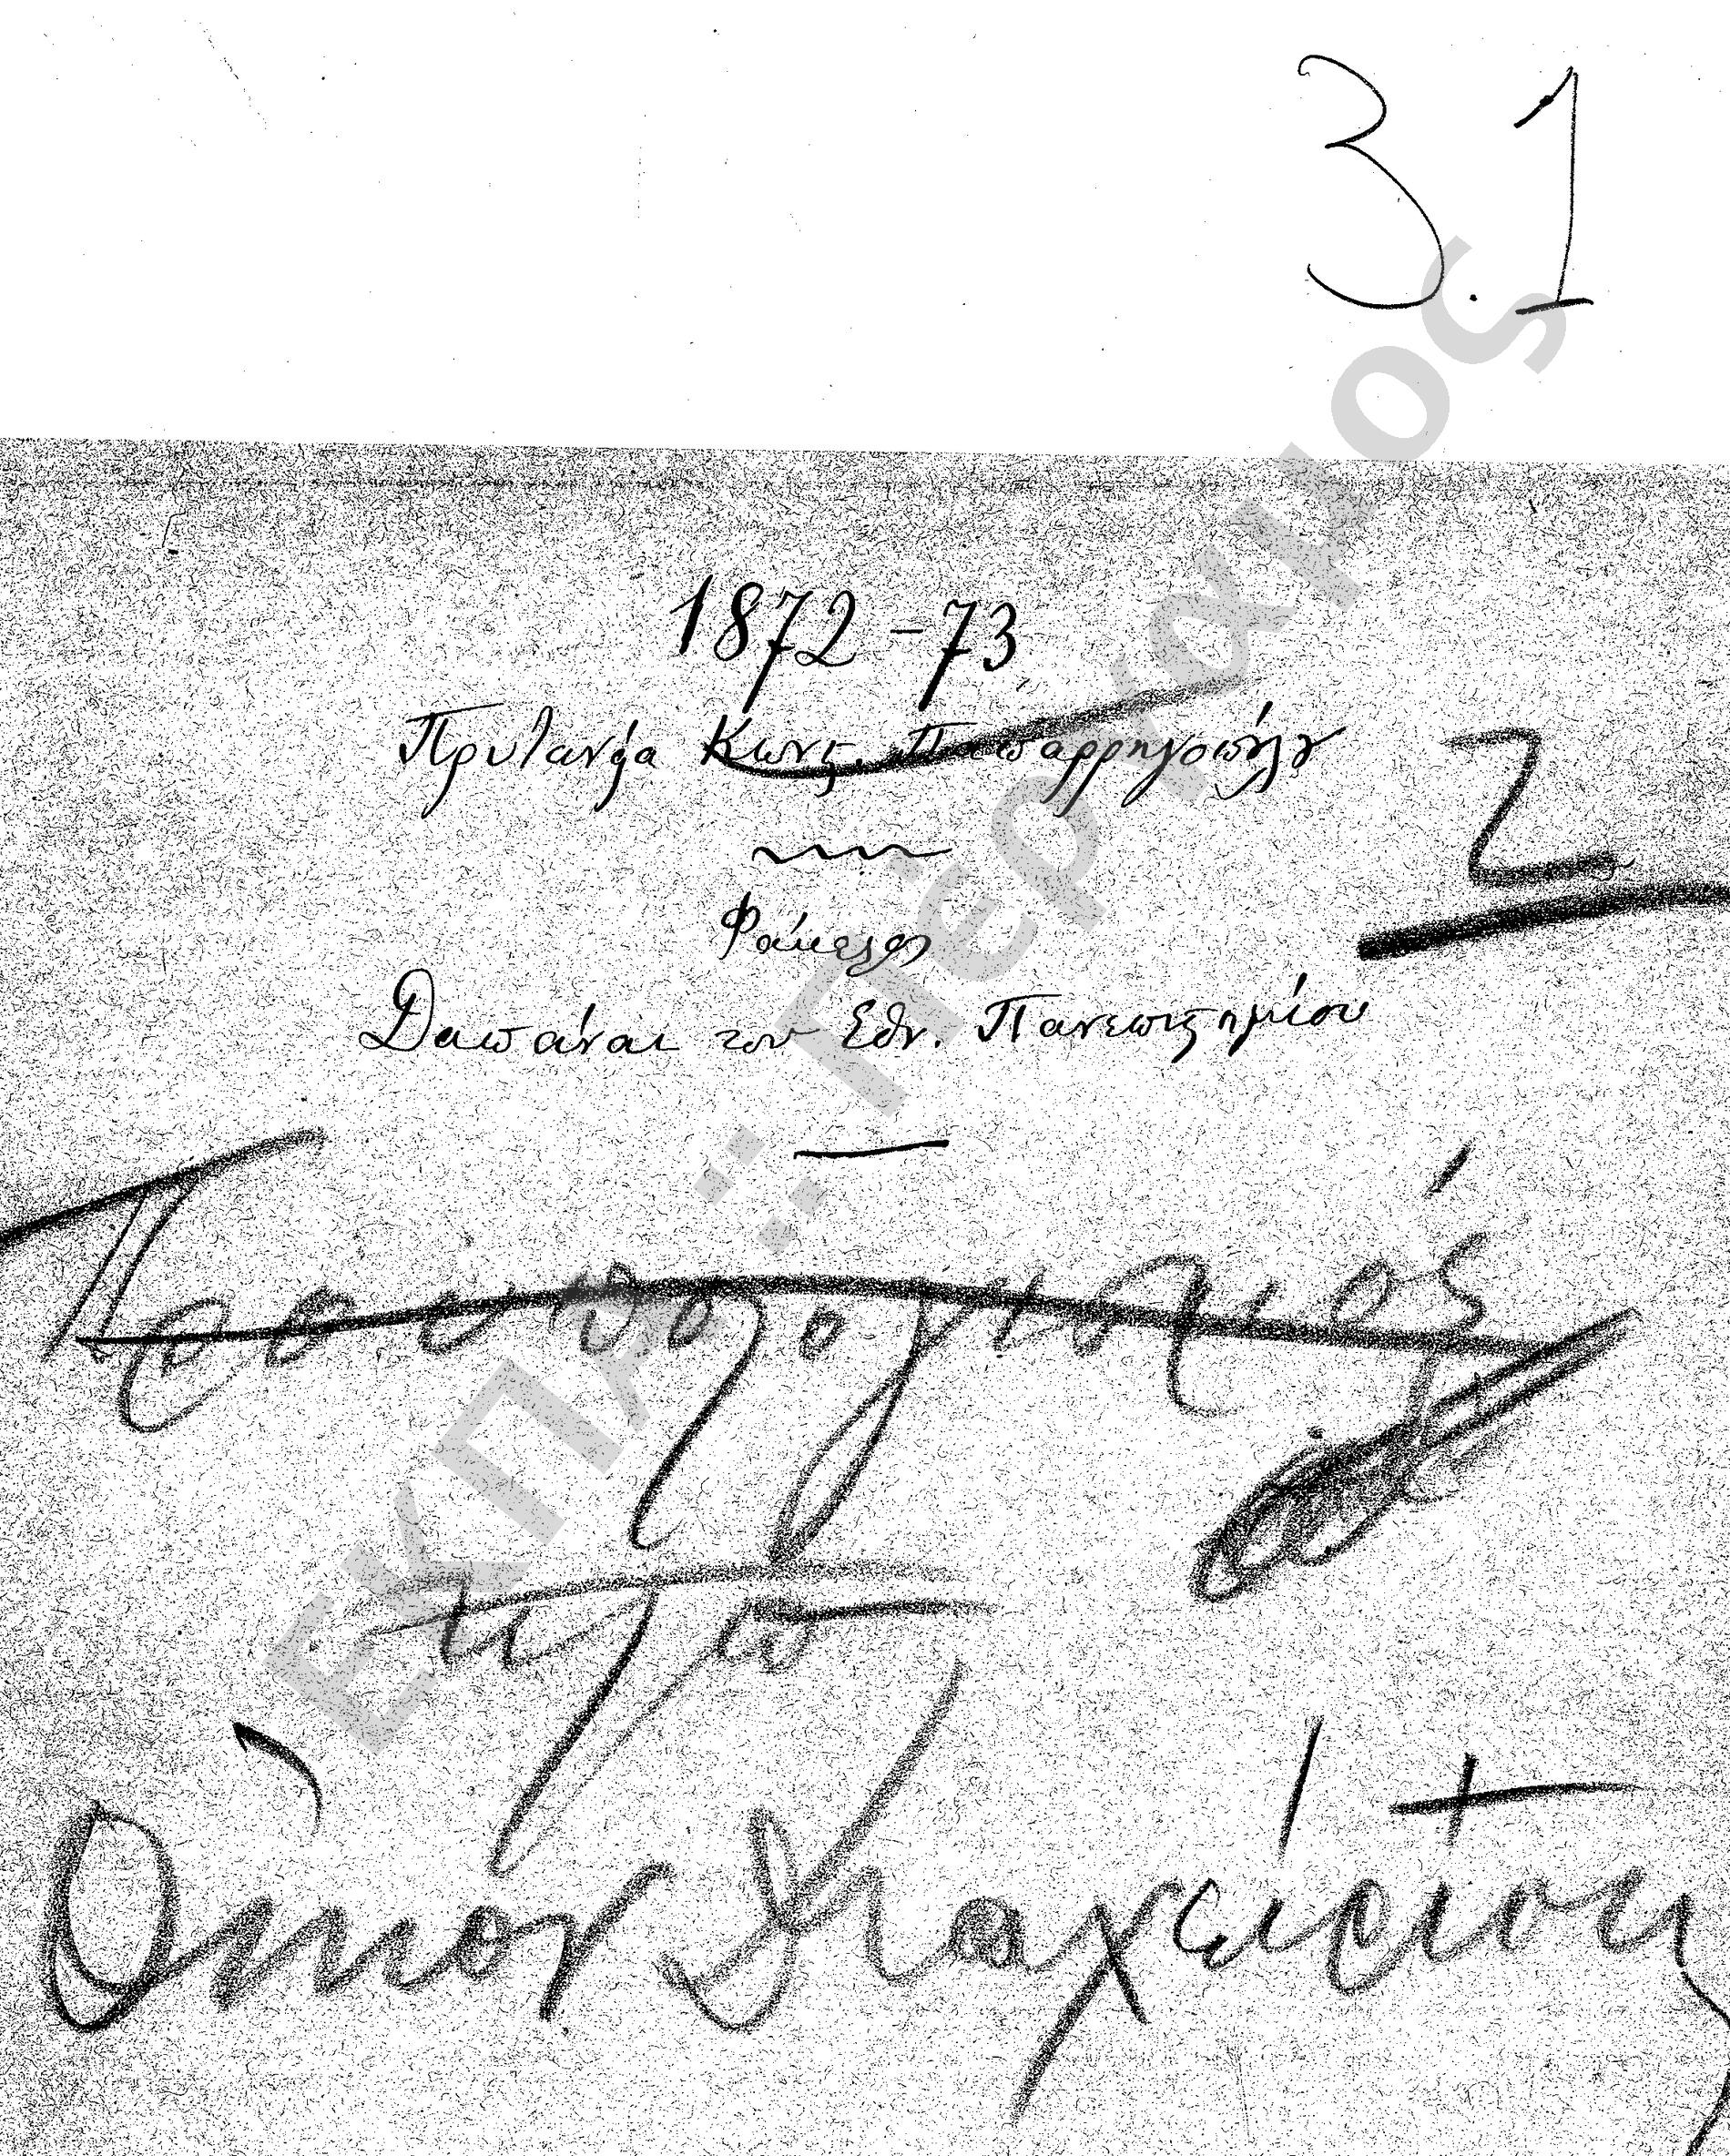 3.1
1872-73
Πρυτανεία Κωνς. Παπαρρηγοπούλου
2
Φάκελος
Δαπάναι του Εθν. Πανεπιςημίου
Προϋπολογισμός
Διαχείρισις
ΕΚΠΑ :: Πέργαμος